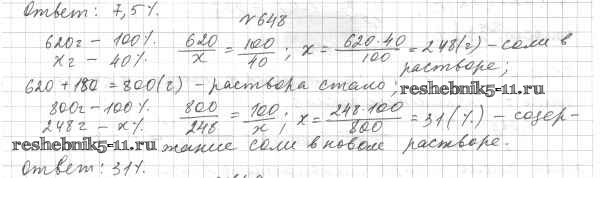 Ответ: 7,5%.
№648
620г – 100%
хг – 40%
620/х = 100/40 ; х = 620·40/100 = 248(г) – соли в растворе;
620 + 180 = 800(г) – раствора стало;
reshebnik5-11.ru
800г – 100%
248г – х%.
800/248 = 100/х ; х = 248·100/800 = 31(%) – содер-
reshebnik5-11.ru
жание соли в новом растворе.
Ответ: 31%.